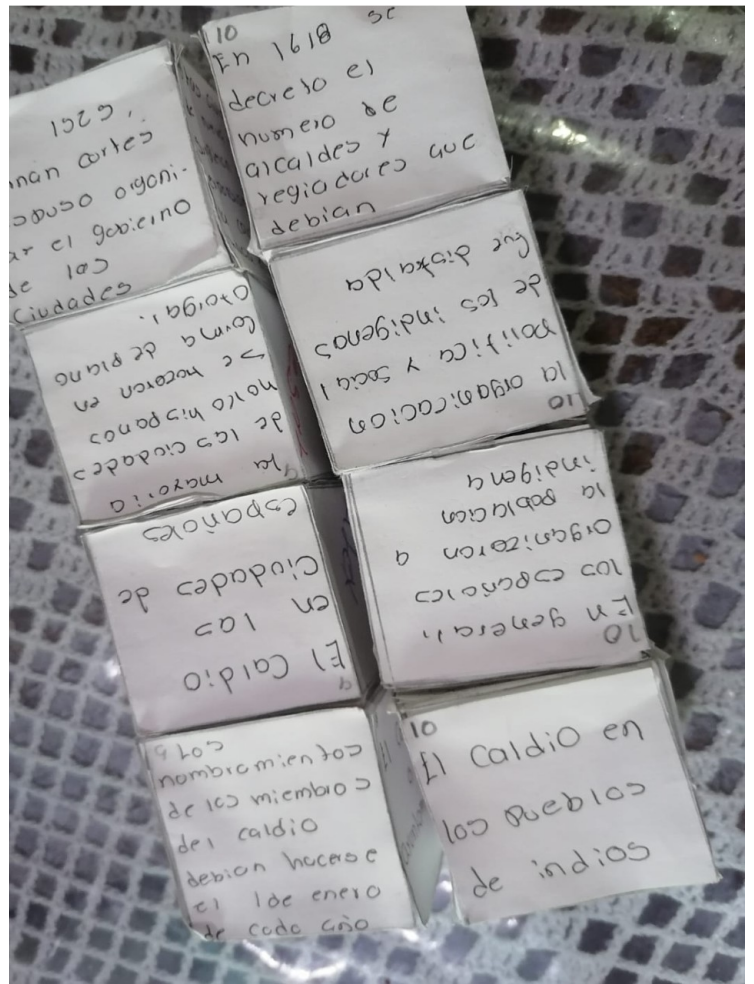 1525,
nan cortes
spuso organi-
ar el gobierno
de las
Ciudades
10
En 1618 se
decreto el
numero de
alcaldes y
regiadores que
debian
9
la mayoria
de las ciudades
novo hispanas
se hoceron en
forma de plano
Otrigal
10
la organicacion
politica y social
de los indigenas
Fue dispalda
9
El Caldio
en las
Ciudades de
españoles
10
En general,
los españoles
organizaron a
la poblacion
indigena
9 Los
nombramientos
de los miembros
del caldio
debian hacerse
el 1de enero
de cada año
10
El Caldio en
los Pueblos
de indios